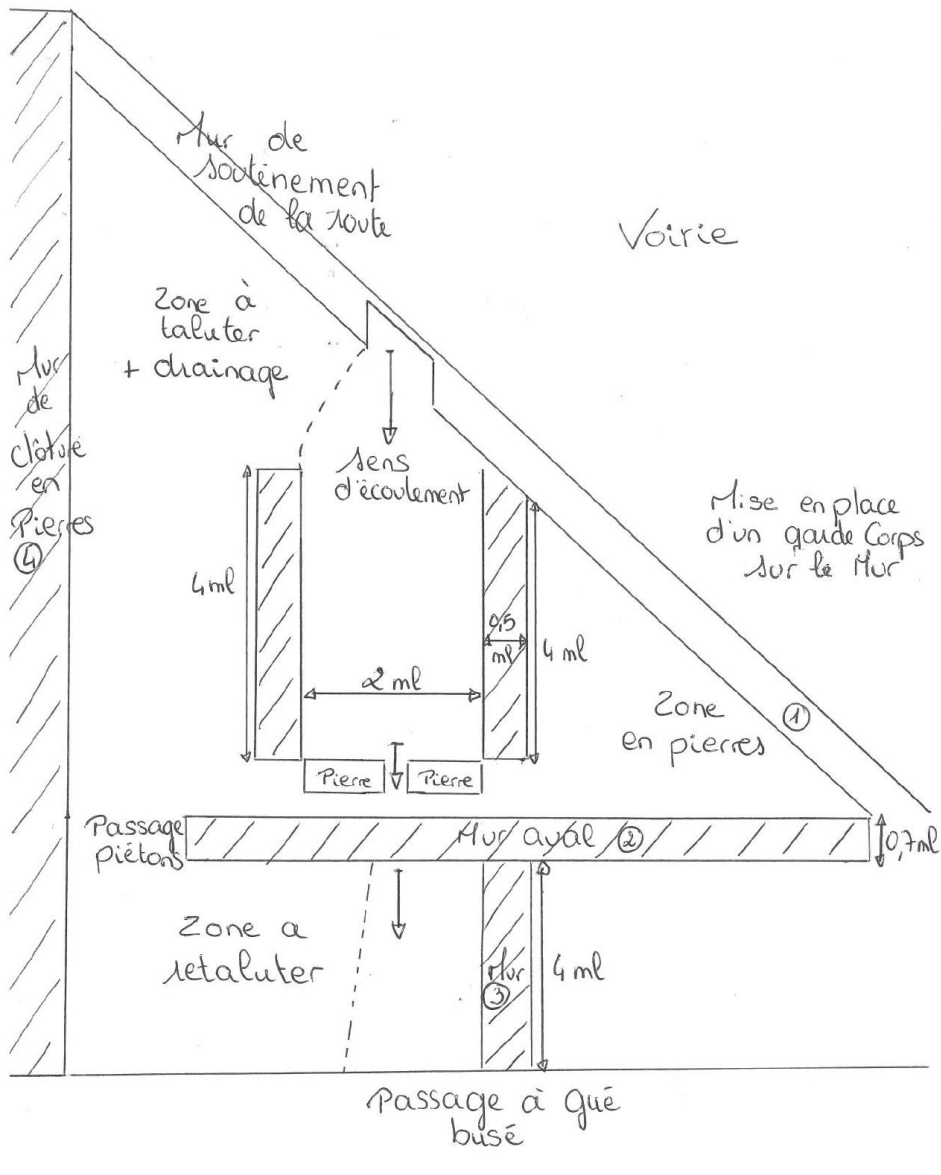 Mur de
soutènement
de la route
Voirie
Zone à
taluter
+ drainage
Mur
de
clôture
en
Pierres
④
sens
d'écoulement
Mise en place
d'un garde Corps
sur le Mur
4 ml
0,5
ml
4 ml
2 ml
Zone
en pierres
①
Pierre
Pierre
Passage
piétons
Mur aval ②
0,7 ml
Zone a
retaluter
Mur
③
4 ml
Passage à gué
busé